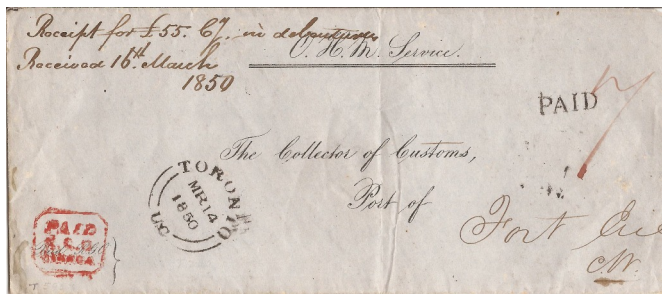 Receipt for £55. Cy. in debentures
Received 16th March
1850
O. H. M. Service.
PAID
7
The Collector of Customs,
Port of
Fort Erie
C.W.
TORONTO
MR 14
1850
U.C
PAID